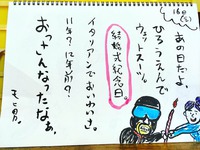 16日(土)
あの日だよ。
ひろうえんで
ウェットスーツ。
結婚式記念日。
イタリアンでおいわい。
11年?12年前?
おっさんなったなぁ。